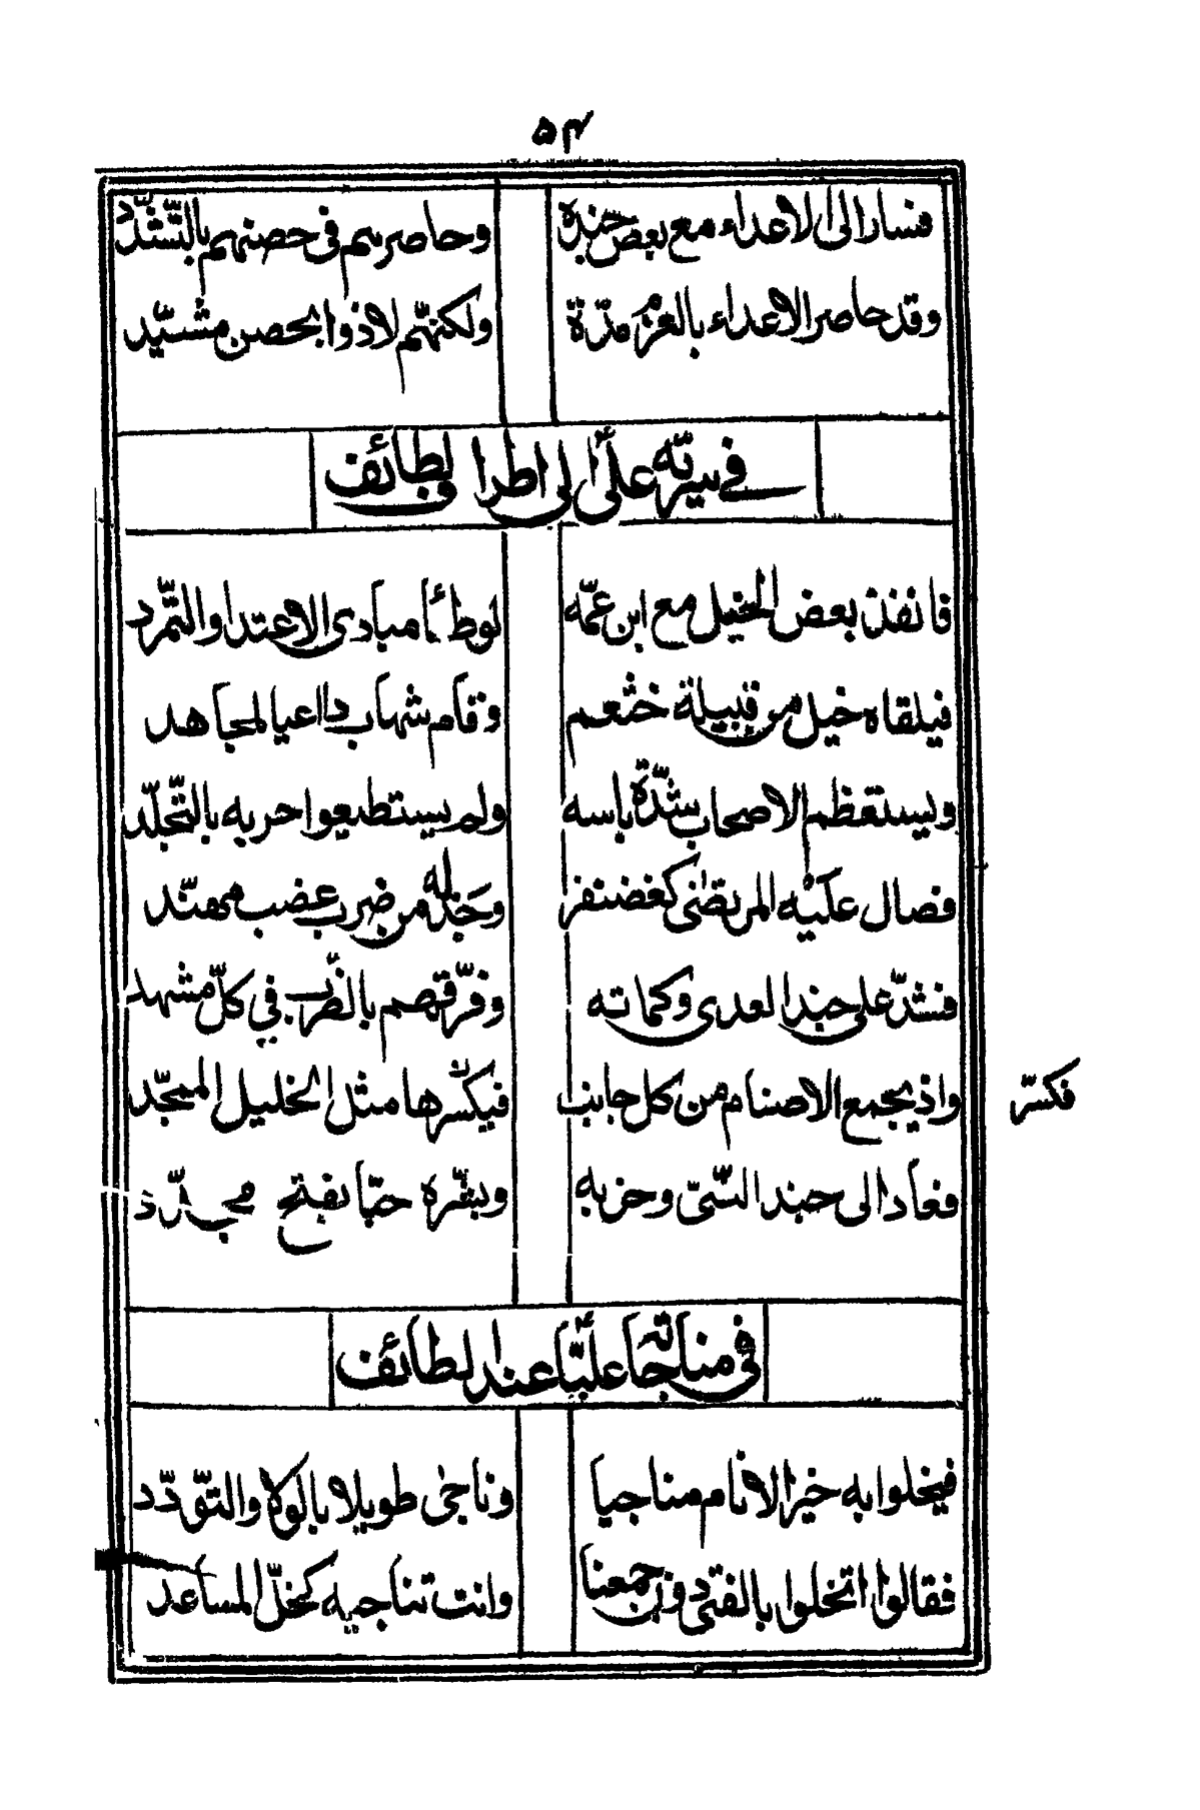 ۵۴
فسار الى الاعداء مع بعض جنده وحاصرهم فى حصنهم بالتشدّد
وقد حاصر الاعداء بالعزم مدّة ولكنّهم لاذوا بحصن مشيّد
في سريّة علىّ الى اطراف لطائف
فانفذ بعض الخيل مع ابن عمّه لوطأ مبادى الاعتدا والتمّرد
فيلقاه خيل من قبيلة خثعم وقام شهاب داعيا لمجاهد
ويستعظم الاصحاب شدّة باسه ولم يستطيعوا حربه بالتجلّد
فصال عليه المرتضى كغضنفر وجدله من ضرب عضب مهنّد
فشدّ على جند العدى وكماته وفرّقهم بالضّرب في كلّ مشهد
واذ يجمع الاصنام من كل جانب فيكسّرها مثل الخليل الممجّد
فكسّر
فعاد الى جند النبىّ وحزبه وبشّره حبّا بفتح مجدّد
فى مناجاته عليّا عند لطائف
فيخلوا به خير الانام مناجيا وناجى طويلا بالولا والتوّدّد
فقالوا اتخلوا بالفتى دون جمعنا وانت تناجيه كخلّ المساعد